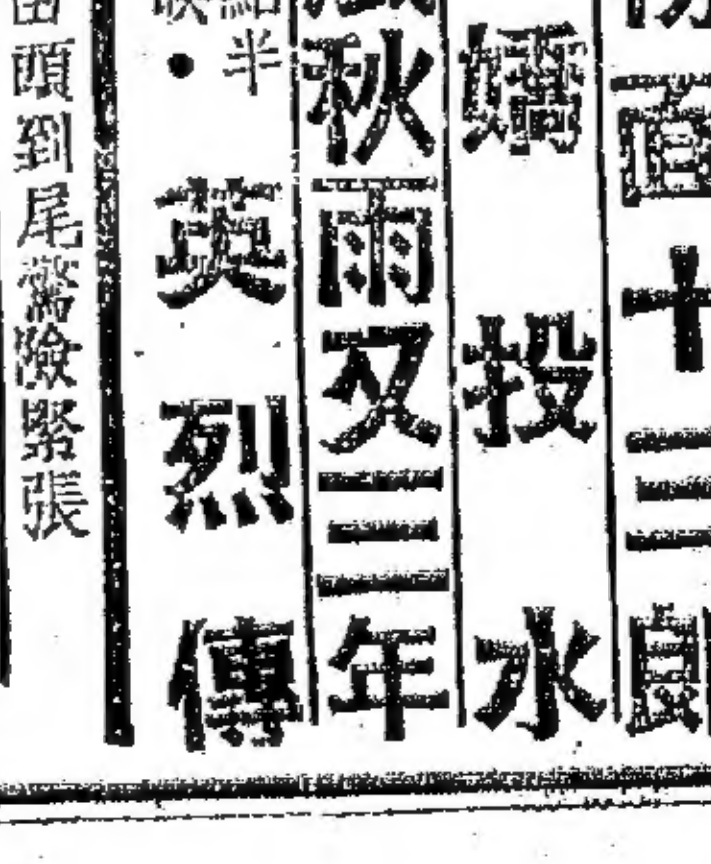 十三郎
嬌投水
秋雨又三年
點半
映•
英烈傳
頭到尾驚險緊張